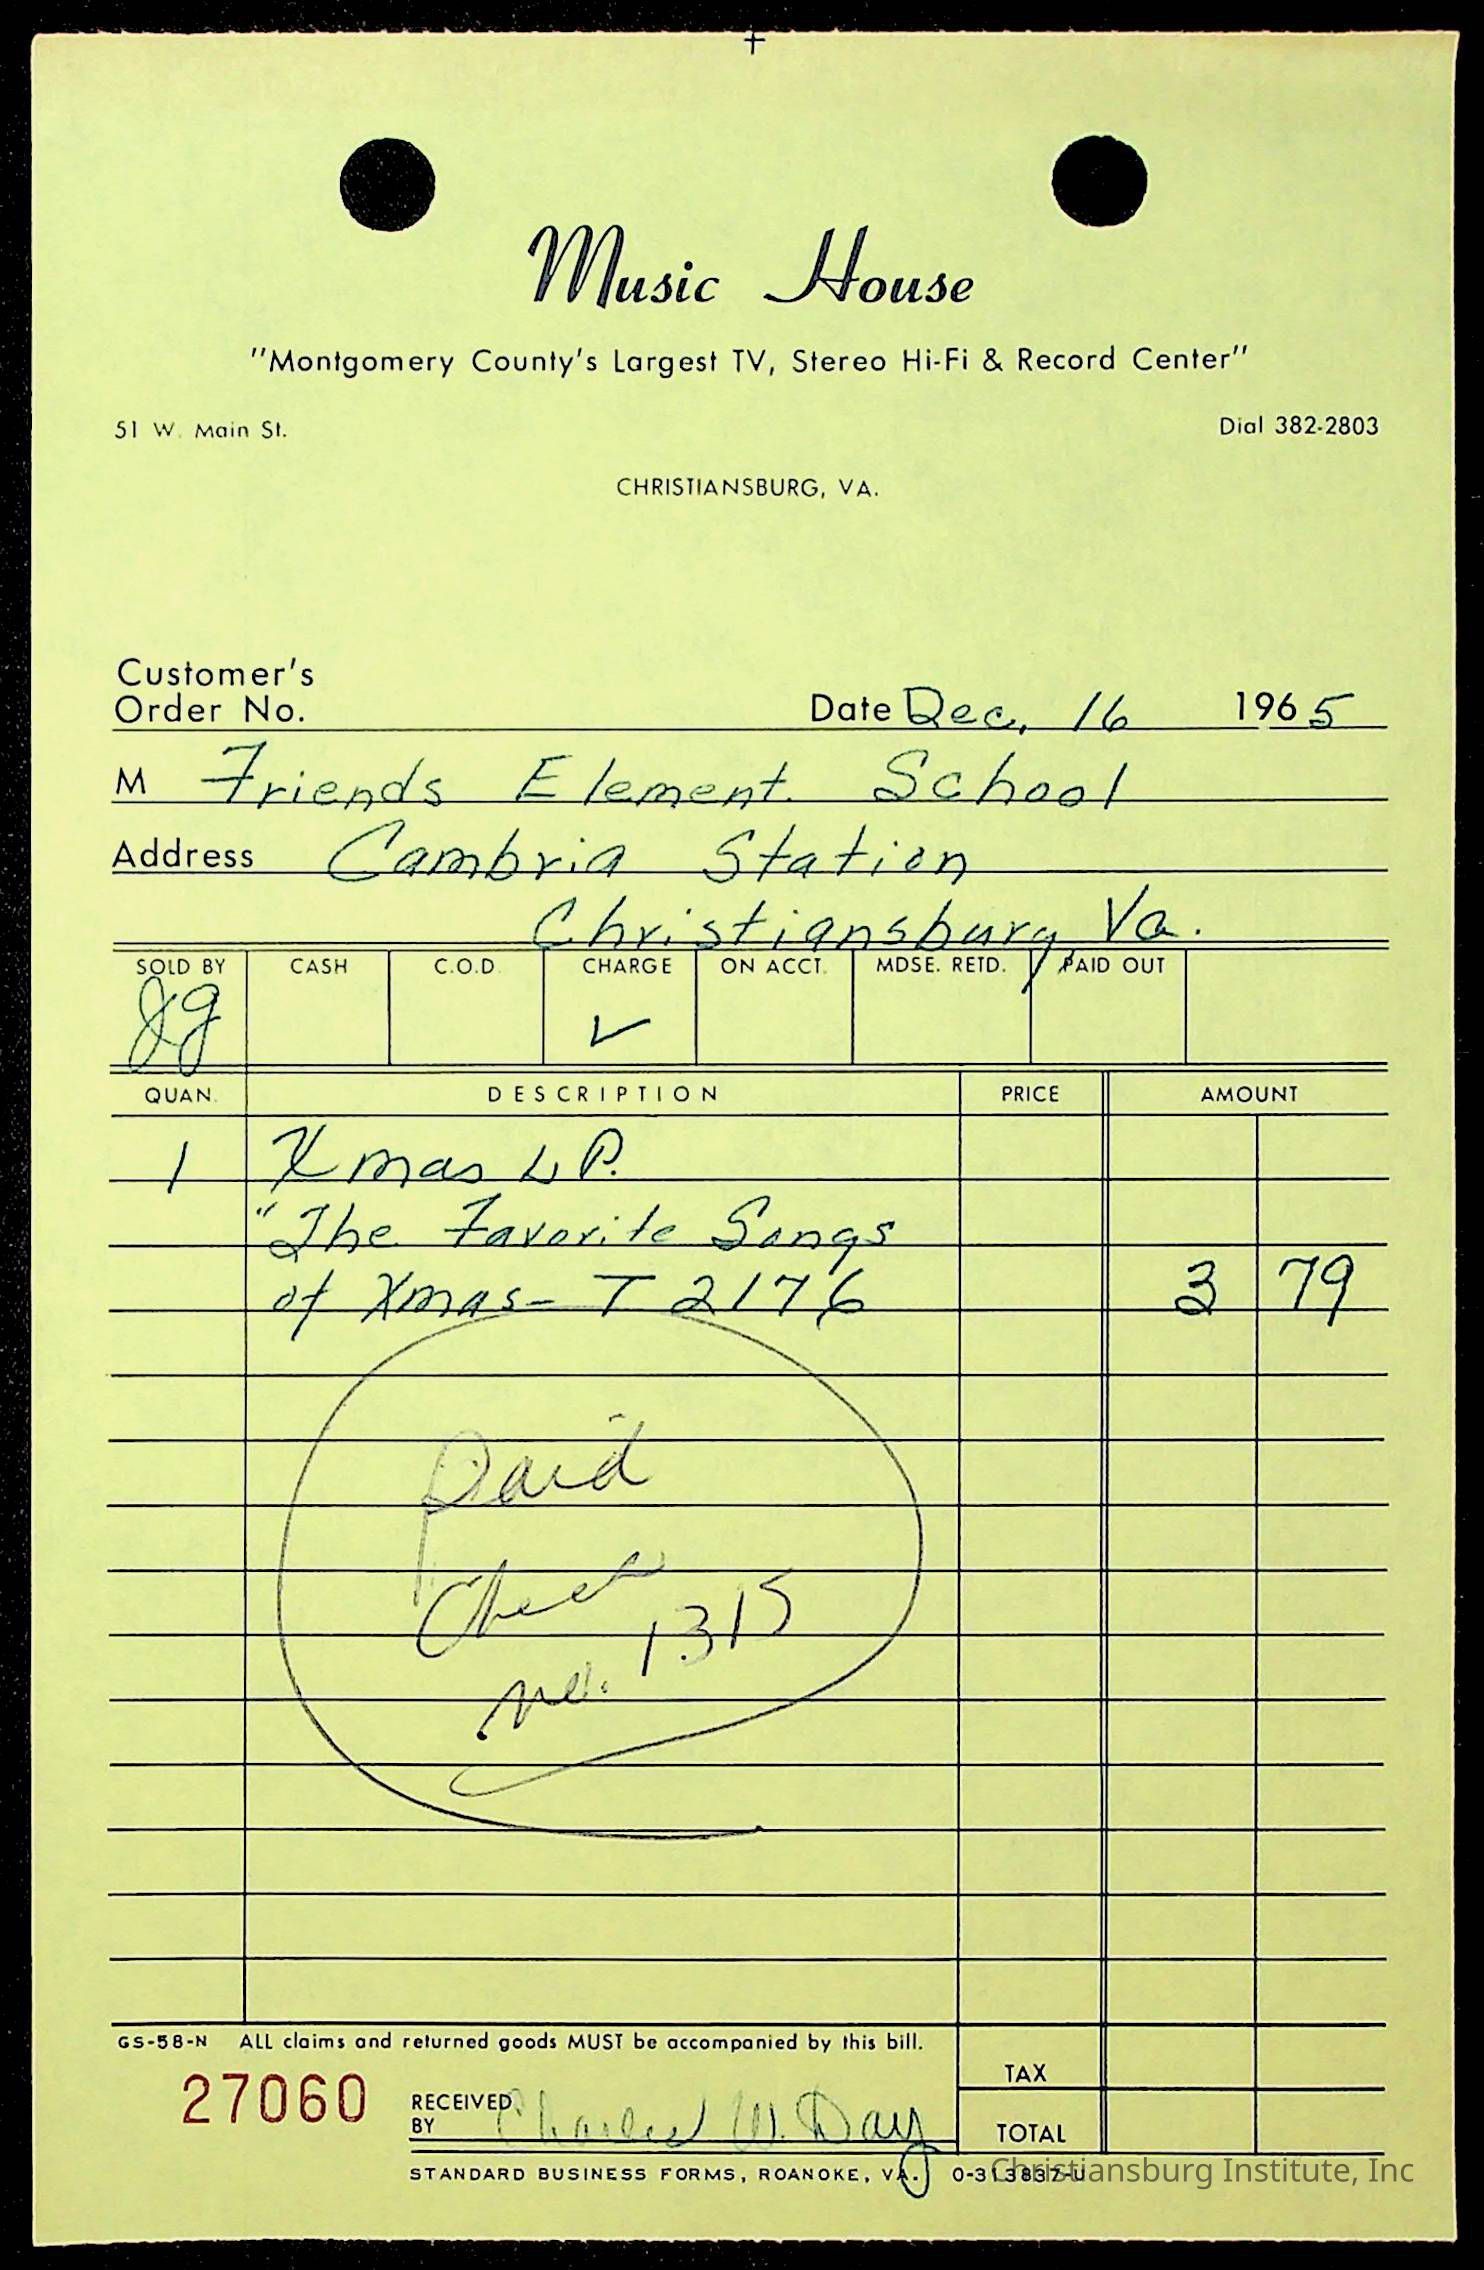 Music House
"Montgomery County's Largest TV, Stereo Hi-Fi & Record Center"
51 W. Main St.
Dial 382-2803
CHRISTIANSBURG, VA.
Customer's
Order No.
Date Dec, 16 1965
M Friends Element. School
Address Cambria Station
Christiansburg Va.
SOLD BY CASH C.O.D. CHARGE ON ACCT. MDSE. RETD. PAID OUT
Jg ✓
QUAN. DESCRIPTION PRICE AMOUNT
1 Xmas LP.
"The Favorite Songs
of Xmas- T 2176 3 79
Paid
Check
no. 1315
GS-58-N ALL claims and returned goods MUST be accompanied by this bill.
TAX
27060
RECEIVED
BY Charles W. Day
TOTAL
STANDARD BUSINESS FORMS, ROANOKE, VA. 0-313837-U
Christiansburg Institute, Inc